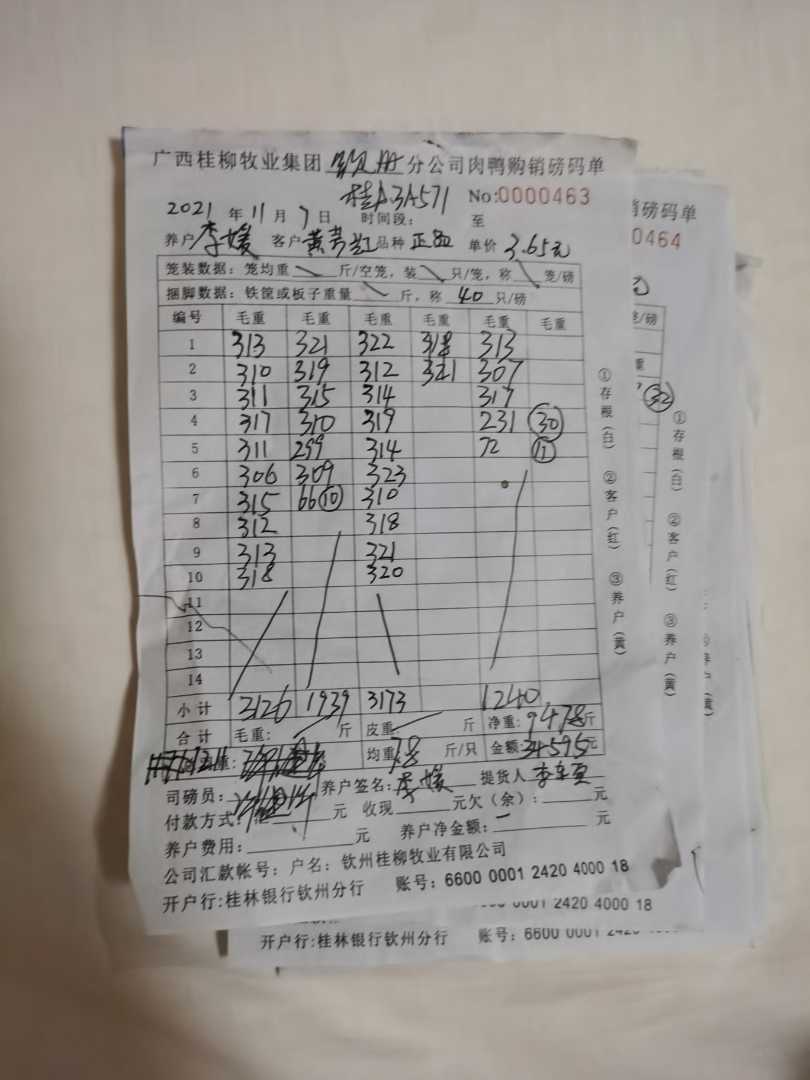 广西桂柳牧业集团 钦州 分公司肉鸭购销磅码单
桂A3A571 No:0000463
2021 年 11 月 7 日 时间段: 至
养户 李媛 客户 黄芳红 品种 正品 单价 3.65元
笼装数据: 笼均重 斤/空笼, 装 只/笼, 称 笼/磅
捆脚数据: 铁筐或板子重量 斤, 称 40 只/磅
编号 毛重 毛重 毛重 毛重 毛重 毛重
1 313 321 322 318 313
2 310 319 312 321 307
3 311 315 314 317
4 317 310 319 231 30
5 311 299 314 72 11
6 306 309 323
7 315 66 10 310
8 312 318
9 313 321
10 318 320
11
12
13
14
小计 3126 1939 3173 1240
合计 毛重: 斤 皮重: 斤 净重: 9478斤
重: 均重 7.8 斤/只 金额: 34595元
司磅员: 养户签名: 李媛 提货人
付款方式: 元 收现 元欠(余): 元
养户费用: 元 养户净金额: 元
公司汇款帐号: 户名: 钦州桂柳牧业有限公司
开户行:桂林银行钦州分行 账号: 6600 0001 2420 4000 18
①存根(白) ②客户(红) ③养户(黄)
销磅码单
0464
元
笼/磅
重
32
①存根(白) ②客户(红) ③养户(黄)
0001 2420 4000 18
开户行:桂林银行钦州分行 账号: 6600 0001 2420